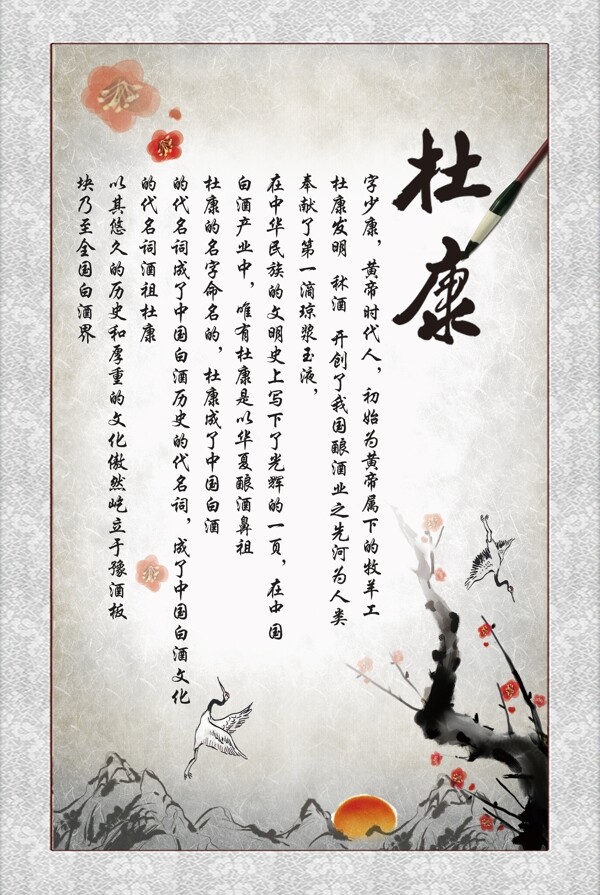 杜康
字少康，黄帝时代人，初始为黄帝属下的牧羊工
杜康发明 秫酒 开创了我国酿酒业之先河为人类
奉献了第一滴琼浆玉液，
在中华民族的文明史上写下了光辉的一页，在中国
白酒产业中，唯有杜康是以华夏酿酒鼻祖
杜康的名字命名的，杜康成了中国白酒
的代名词成了中国白酒历史的代名词，成了中国白酒文化
的代名词酒祖杜康
以其悠久的历史和厚重的文化傲然屹立于豫酒板
块乃至全国白酒界